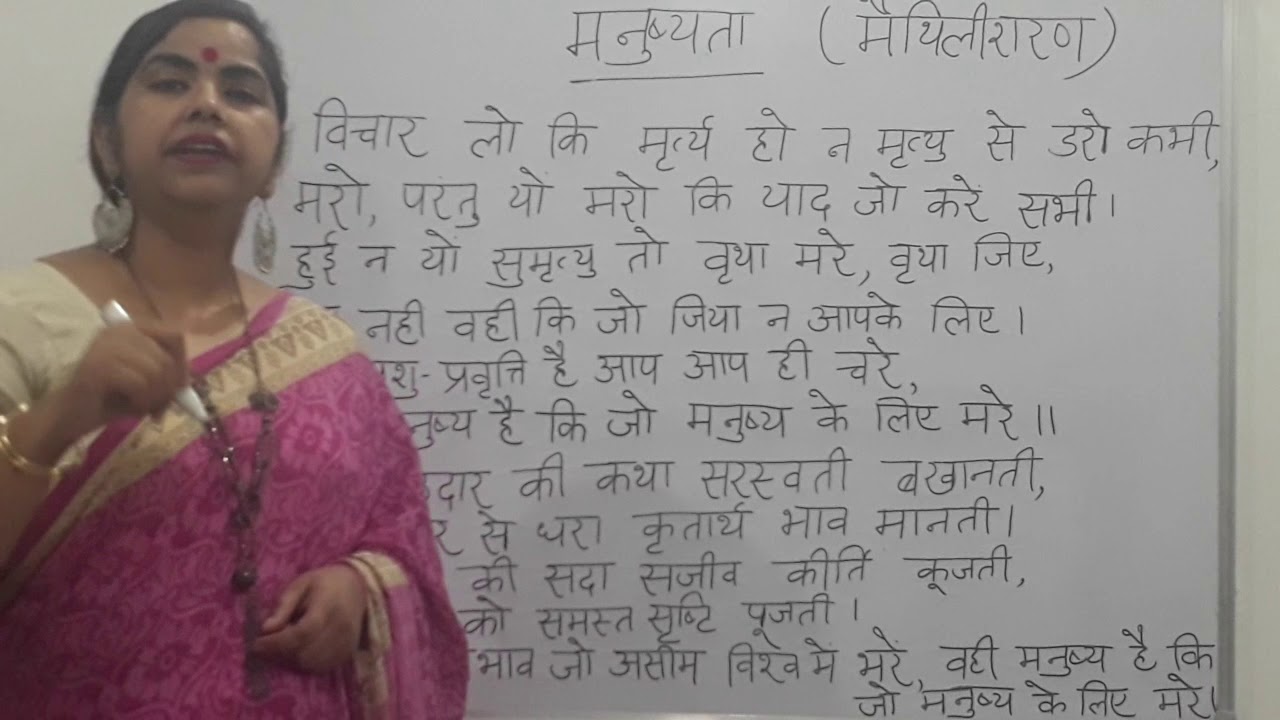 मनुष्यता (मैथिलीशरण)
विचार लो कि मृर्त्य हो न मृत्यु से डरो कभी,
मरो, परंतु यों मरो कि याद जो करें सभी।
हुई न यों सुमृत्यु तो वृथा मरे, वृथा जिए,
नही वही कि जो जिया न आपके लिए।
पशु-प्रवृत्ति है आप आप ही चरे,
मनुष्य है कि जो मनुष्य के लिए मरे॥
उदार की कथा सरस्वती बखानती,
से धरा कृतार्थ भाव मानती।
की सदा सजीव कीर्ति कूजती,
को समस्त सृष्टि पूजती।
भाव जो असीम विश्व में भरे, वही मनुष्य है कि
जो मनुष्य के लिए मरे।